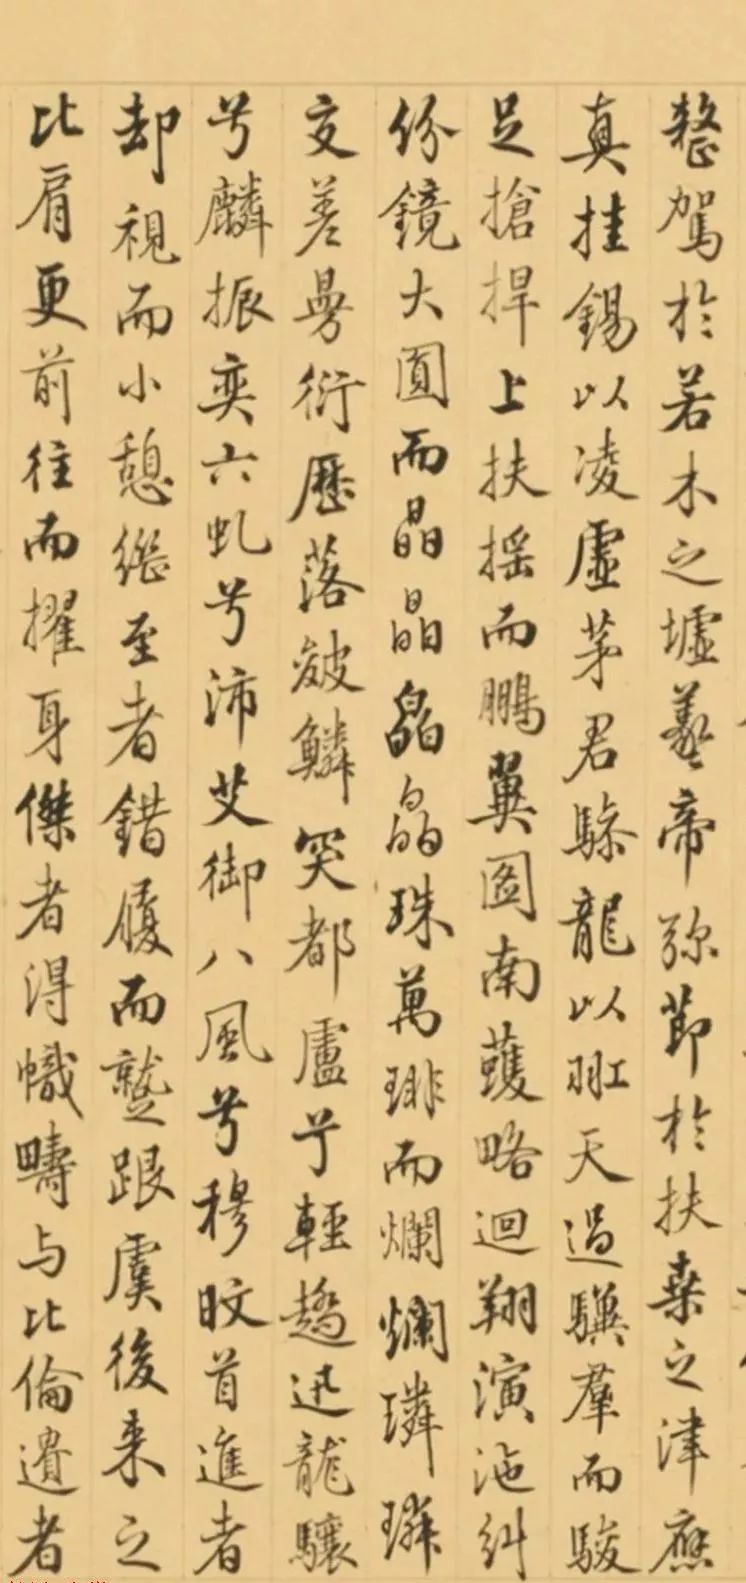 整駕於若木之墟羲帝弥節於扶桑之津應
真挂錫以凌虛茅君驂龍以羾天過驥羣而駿
足搶捍上扶摇而鵬翼圖南蠖略迴翔演迤糾
份鏡大圓而晶晶晶晶珠萬琲而爛爛璘璘
交差曼衍歷落皴鱗突都盧兮輕趫迅龍驤
兮麟振奕六虬兮沛艾御八風兮穆旼首進者
却視而小憩繼至者錯履而蹩跟虞後来之
比肩更前往而擢身傑者得幟疇与比倫遺者